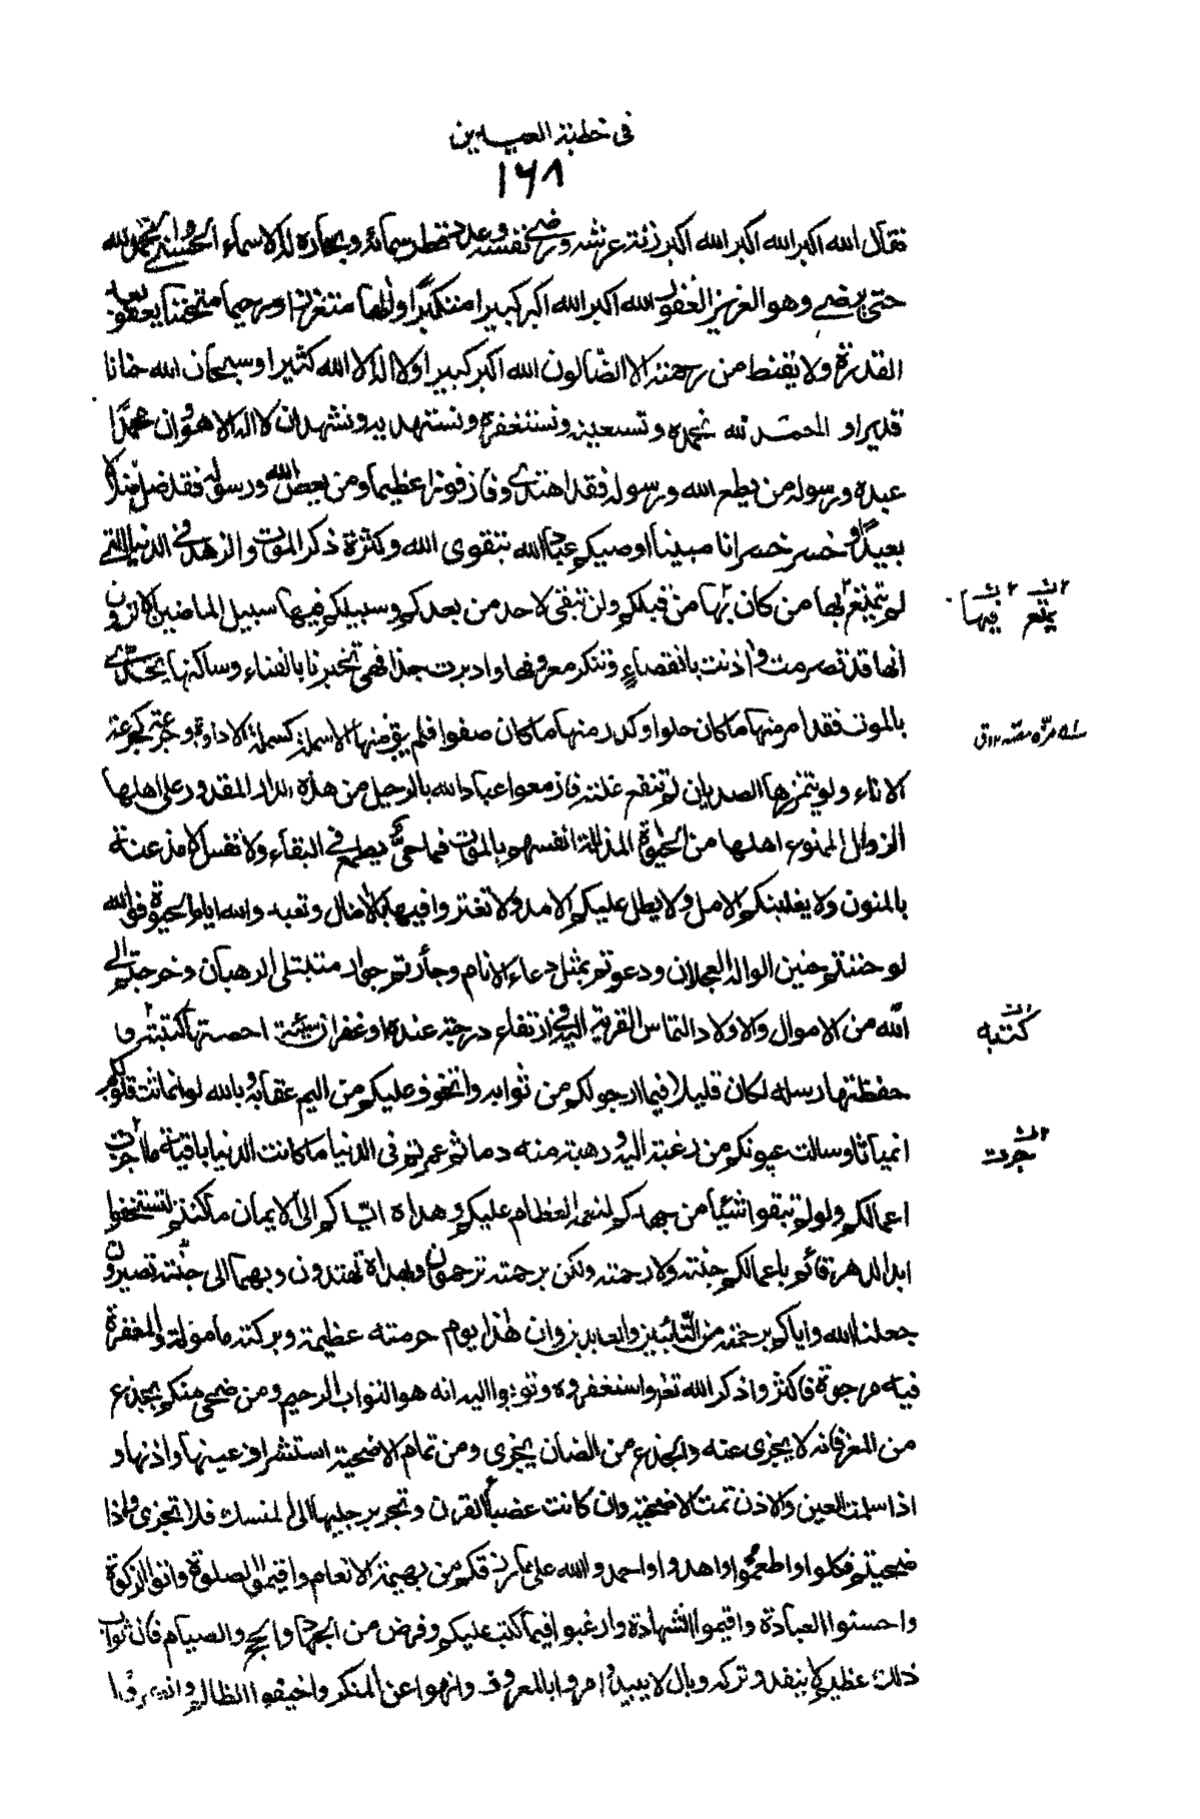 في خطبة العيدين
١٦٨
فقال الله اكبر الله اكبر الله اكبر زنة عرشه ورضى نفسه وعدد قطر سمائه وبحاره له الاسماء الحسنى والحمد لله
حتى يرضى وهو العزيز الغفور الله اكبر الله اكبر كبيرا متكبرا والها متعززا ورحيما متحننا يعفو بعد
القدرة ولا يقنط من رحمته الا الضالون الله اكبر كبيرا ولا اله الا الله كثيرا وسبحان الله حنانا
قديرا و الحمد لله نحمده ونستعينه ونستغفره ونستهديه ونشهد ان لا اله الا هو وان محمدا
عبده ورسوله من يطع الله ورسوله فقد اهتدى وفاز فوزا عظيما ومن يعص الله ورسوله فقد ضل ضلالا
بعيدا وخسر خسرانا مبينا اوصيكم عباد الله بتقوى الله وكثرة ذكر الموت والزهد في الدنيا التي
لم يتمتع بها من كان بها من قبلكم ولن تبقى لاحد من بعدكم وسبيلكم فيها سبيل الماضين الا ترون
يمتع فيها
انها قد تصرمت واذنت بانقضاء وتنكر معروفها وادبرت حذاء فهي تخبرنا بالفناء وساكنها يحدى
بالموت فقد امر منها ما كان حلوا وكدر منها ما كان صفوا فلم يبق منها الا سملة كسملة الاداوة وجرعة كجرعة
الاناء ولو يتمززها الصديان لم تنقع غلته فازمعوا عباد الله بالرحيل من هذه الدار المقدور على اهلها
الزوال الممنوع اهلها من الحيوة المذللة انفسهم بالموت فما حى يطمع في البقاء ولا نفس الا مذعنة
بالمنون ولا يغلبنكم الامل ولا يطل عليكم الامد ولا تغتروا فيها بالامال وتعبد والله ايام الحيوة فوالله
لو حننتم حنين الواله العجلان ودعوتم بمثل دعاء الانام وجأرتم جوار متبتلى الرهبان وخرجتم الى
الله من الاموال والاولاد التماس القربة اليه في ارتفاع درجة عنده او غفران سيئة احصتها كتبته و
كتبه
حفظتها رسله لكان قليلا فيما ارجو لكم من ثوابه واتخوف عليكم من اليم عقابه وبالله لو انماثت قلوبكم
انمياثا وسالت عيونكم من رغبة اليه ورهبة منه دما ثم عمرتم في الدنيا ما كانت الدنيا باقية ما جزت
جزت
اعمالكم ولو لم تبقوا شيئا من جهدكم لنعمه العظام عليكم وهداه اياكم الى الايمان ما كنتم لتستحقوا
ابد الدهر قائم باعمالكم جنته ولا رحمته ولكن برحمته ترحمون وبهداه تهتدون وبهما الى جنته تصيرون
جعلنا الله واياكم برحمته من التائبين والعابدين وان هذا يوم حرمته عظيمة وبركته مامولة والمغفرة
فيه مرجوة فاكثروا ذكر الله تعالى واستغفروه وتوبوا اليه انه هو التواب الرحيم ومن ضحى منكم بجذع
من المعز فانه لا يجزى عنه والجذع من الضان يجزى ومن تمام الاضحية استشراف عينها واذنها و
اذا سلمت العين والاذن تمت الاضحية وان كانت عضباء القرن وتجر برجليها الى المنسك فلا تجزى واذا
ضحيتم فكلوا واطعموا واهدوا واحمدوا الله على ما رزقكم من بهيمة الانعام واقيموا الصلوة واتوا الزكوة
واحسنوا العبادة واقيموا الشهادة وارغبوا فيما كتب عليكم وفرض من الجهاد والحج والصيام فان ثواب
ذلك عظيم لا ينفد وتركه وبال لا يبيد وامروا بالمعروف وانهوا عن المنكر واخيفوا الظالم وانصروا